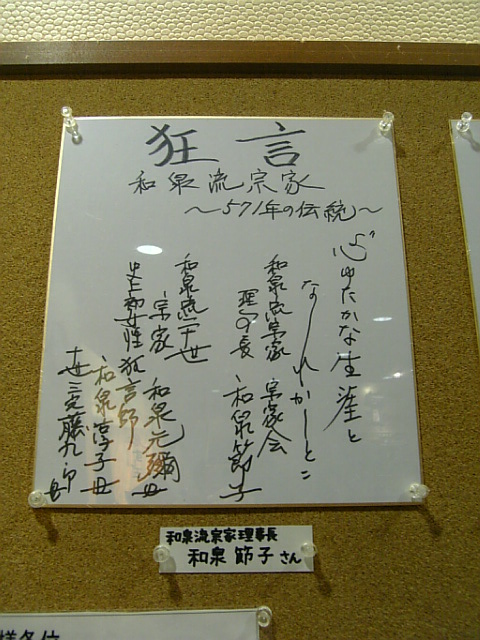 狂言
和泉流宗家
～571年の伝統～
心ゆたかな生涯と
なれかしとこ
和泉流宗家 宗家会
理事長 和泉節子
和泉流二十世
宗家 和泉元彌
史上初女性狂言師
和泉淳子
十世三宅藤九郎
和泉流宗家理事長
和泉 節子さん
様各位